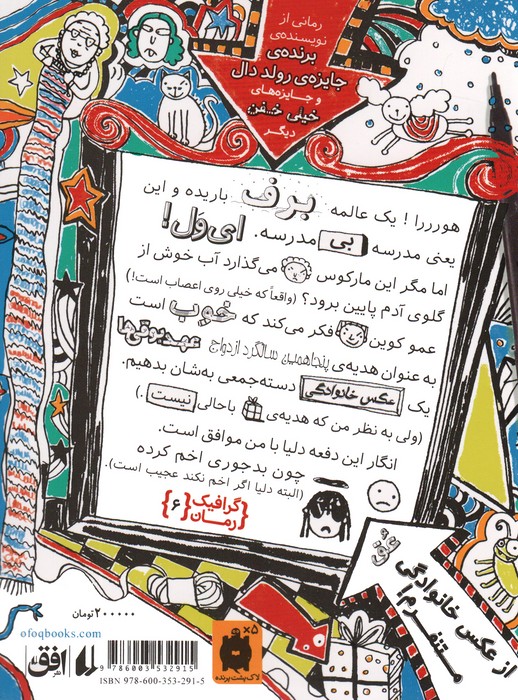 رمانی از
نویسنده‌ی
برنده‌ی
جایزه‌ی رولد دال
و جایزه‌های
خیلی خفن
دیگر
هوررررا ! یک عالمه برف باریده و این
یعنی مدرسه بی مدرسه. ای وَل!
اما مگر این مارکوس می‌گذارد آب خوش از
گلوی آدم پایین برود؟ (واقعاً که خیلی روی اعصاب است!)
عمو کوین فکر می‌کند که خوب است
به عنوان هدیه‌ی پنجاهمین سالگرد ازدواج عهدبوقی‌ها
یک عکس خانوادگی دسته‌جمعی به‌شان بدهیم.
(ولی به نظر من که هدیه‌ی باحالی نیست.)
انگار این دفعه دلیا با من موافق است.
چون بدجوری اخم کرده
(البته دلیا اگر اخم نکند عجیب است).
گرافیک
رمان
{۶}
از عکس خانوادگی
متنفرم!
۲۰۰۰۰۰ تومان
ofoqbooks.com
نشر افق
9 786003 532915
ISBN 978-600-353-291-5
×۵
لاک‌پشت پرنده